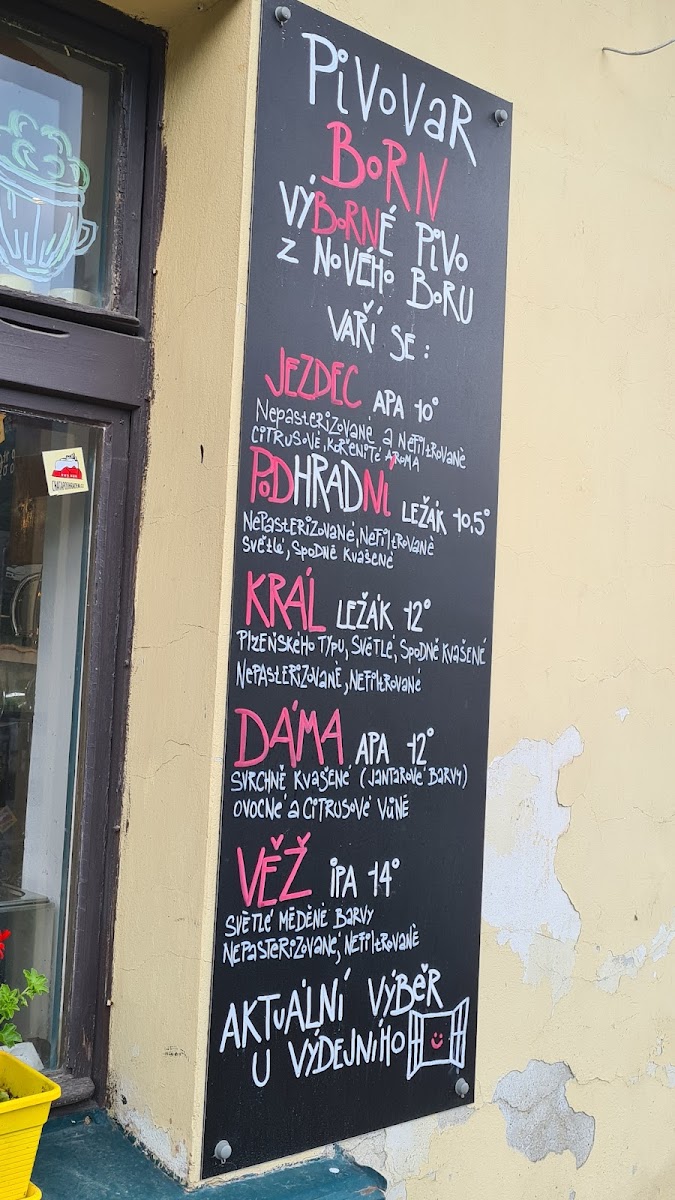 PiVoVaR
BoRN
VÝBoRNÉ PiVo
Z NoVÉHo BoRU
VAŘÍ SE:
JEZDEC APA 10°
Nepasterizované a Nefiltrované
citrusové, kořenité aroma
PoDHRADNí LEŽÁK 10,5°
Nepasterizované, Nefiltrované
Světlé, Spodně kvašené
KRÁL LEŽÁK 12°
Plzeňského typu, Světlé, Spodně kvašené
Nepasterizované, Nefiltrované
DÁMA APA 12°
Svrchně kvašené (Jantarové barvy)
ovocné a citrusové vůně
VĚŽ iPA 14°
Světlé měděné barvy
Nepasterizované, Nefiltrované
AKTuÁLNÍ VÝBěR
U VÝDEJNÍHo